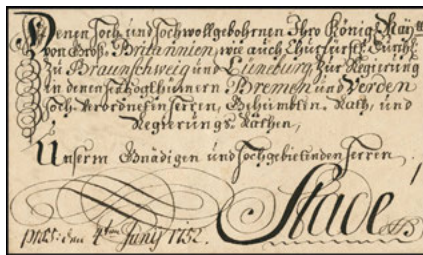 Denen Hoch und Hochwollgebohrnen Ihro Königl. May:tt
von Groß-Britannien, wie auch Churfürstl. Durchl:
Zu Braunschweig und Lüneburg Zur Regierung
in denen Hertzogthümern Bremen und Verden
Hoch-Verordneten Herren, Geheimbten-Rath, und
Regierungs-Räthen,
Unserm Gnädigen und Hochgebietenden Herren.
den 4ten Junÿ 1752.
Stade